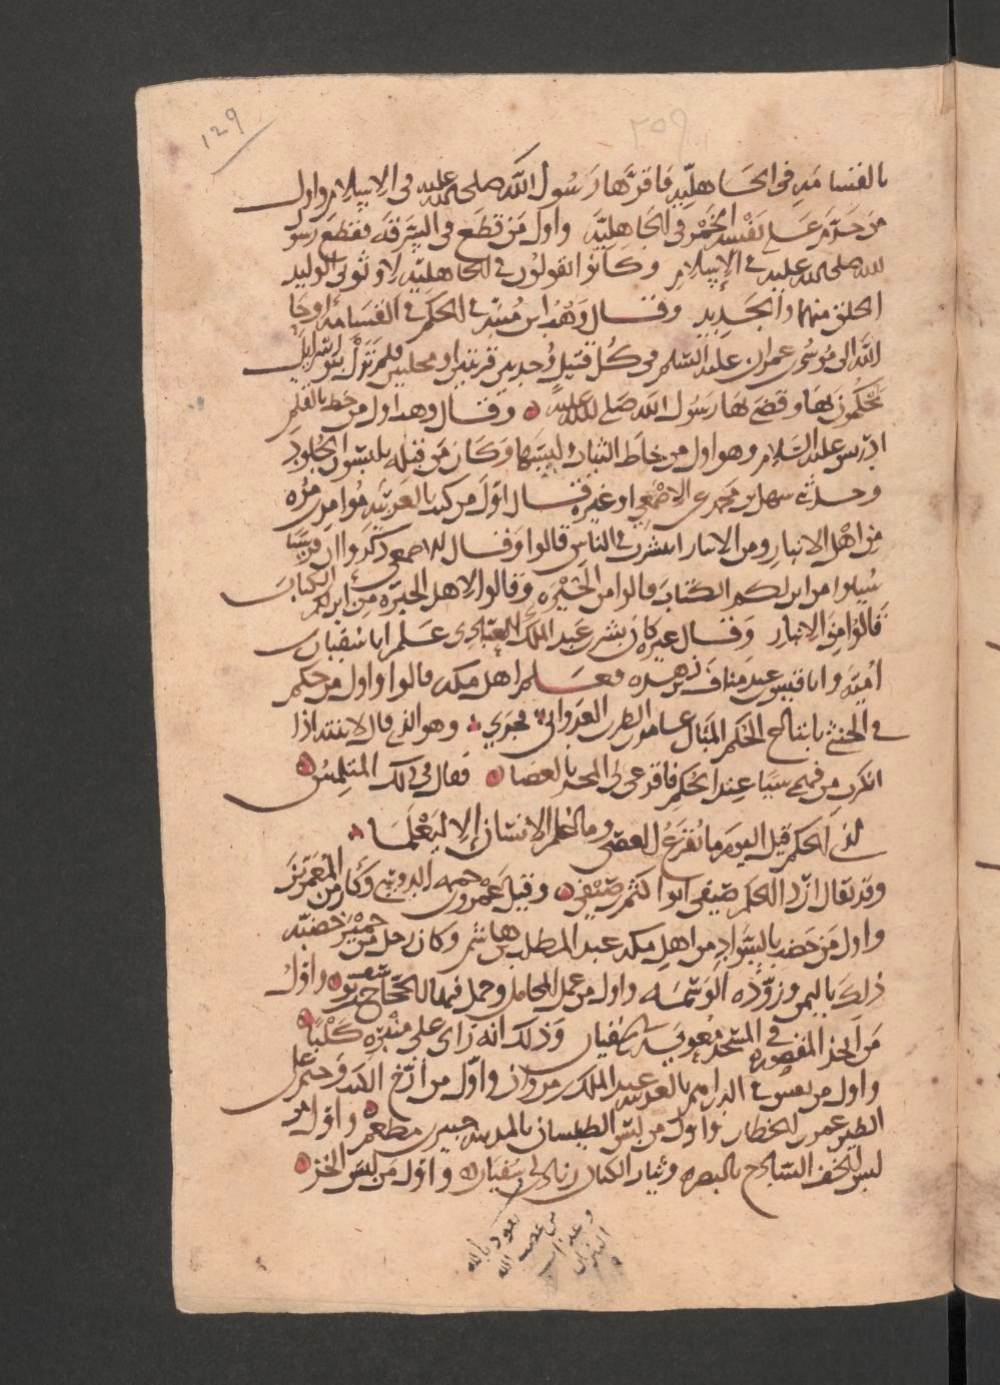 129
209
بالقسامه في الجاهلية فاقرها رسول الله صلى الله عليه في الاسلام واول
من حرّم على نفسه الخمر في الجاهلية واول من قطع في السرقة فقطع رسو
لله صلى الله عليه في الاسلام وكانوا يقولون في الجاهلية لا وثوبى الوليد
الخلق منهما والجديد وقال وهب ابن منبه في الحكم في القسامه اوحا
الله الى موسى عمران عليه السلم في كل قتيل وجد بين قريتين او محلتين فلم تزل بنو اسرايل
يحكمون بها وقضى بها رسول الله صلى الله عليه وقال وهب اول من خط بالقلم
ادريس عليه السلام وهو اول من خاط الثياب ولبسها وكان من قبله يلبسون الجلود
وحدثه سهل بن محمد عن الاصمعي او غيره قال اول من كتب بالعربيه مرامر بن مره
من اهل الانبار ومن الانبار انتشرت في الناس قالوا وقال الاصمعي ذكروا ان قريشا
سيلوا من اين لكم الكتاب قالوا من الحيره وقالوا لاهل الحيره من اين لكم الكتاب
قالوا من الانبار وقال غيره كان بشر بن عبد الملك العبادي علم ابا سفيان بن
امية وابا قيس بن عبد مناف بن زهره فعلم اهل مكه قالوا واول من حكم
في الخنثى باتباع الحكم المبال عامر بن الظرب العدواني فجرى وهو الذي قال لابنته اذا
انكرت من فهمي شيا عند الحكم فاقرعى لي المجن بالعصا فقال في ذلك المتلمس
لذي الحكم قبل اليوم ما تقرع العصى وما علم الانسان إلا ليعلما
وقد يقال ان ذا الحكم صيفي ابو اكثم بن صيفي وقيل عمرو بن حممه الدوسي وكان من المعمرين
واول من خضب بالسواد من اهل مكه عبد المطلب بن هاشم وكان رجل من حمير خضبه
ذلك باليمن وزوّده الوشمه واول من عمل المحامل وحمل فيها الحجاج بن يوسف واول
من اتخذ المقصوره في المسجد معويه بن ابي سفيان وذلك انه راى على منبره كلبا
واول من نقش في الدراهم بالعربيه عبد الملك بن مروان واول من ارّخ الكتب وختم على
الطين عمر بن الخطاب واول من لبس الطيلسان بالمدينه جبير بن مطعم واول من
لبس الخف الساذج بالبصره وثياب الكتان زياد بن ابي سفيان واول من لبس الخز
نعوذ بالله
من غضب الله
وعذاب
النيران